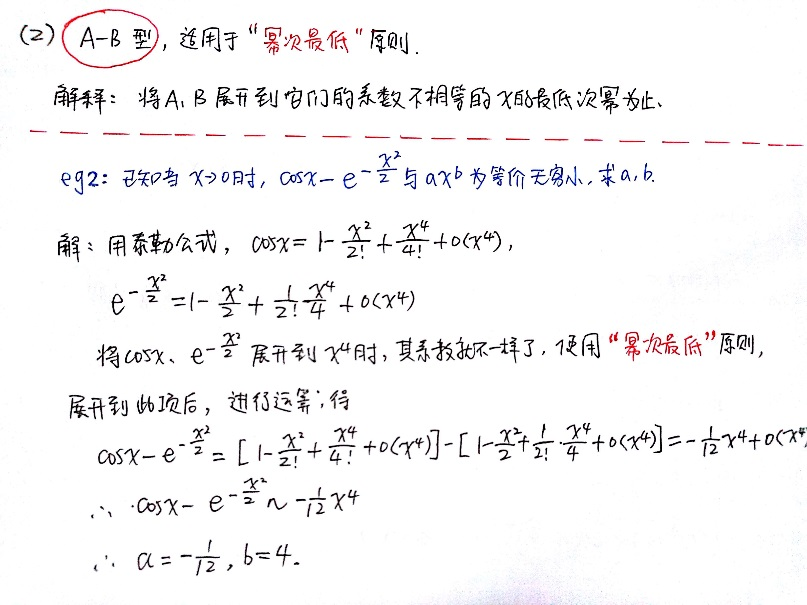 (2) A-B 型，适用于“幂次最低”原则.
解释：将A、B展开到它们的系数不相等的x的最低次幂为止、
eg2：已知当 x→0时，cosx-e^{-x²/2}与ax^b为等价无穷小，求a,b.
解：用泰勒公式，cosx=1-x²/2!+x⁴/4!+o(x⁴),
e^{-x²/2}=1-x²/2+1/2!·x⁴/4+o(x⁴)
将cosx、e^{-x²/2}展开到x⁴时，其系数就不一样了，使用“幂次最低”原则，
展开到此项后，进行运算；得
cosx-e^{-x²/2}=[1-x²/2!+x⁴/4!+o(x⁴)]-[1-x²/2+1/2!·x⁴/4+o(x⁴)]=-1/12x⁴+o(x⁴
∴ cosx-e^{-x²/2}~-1/12x⁴
∴ a=-1/12, b=4.